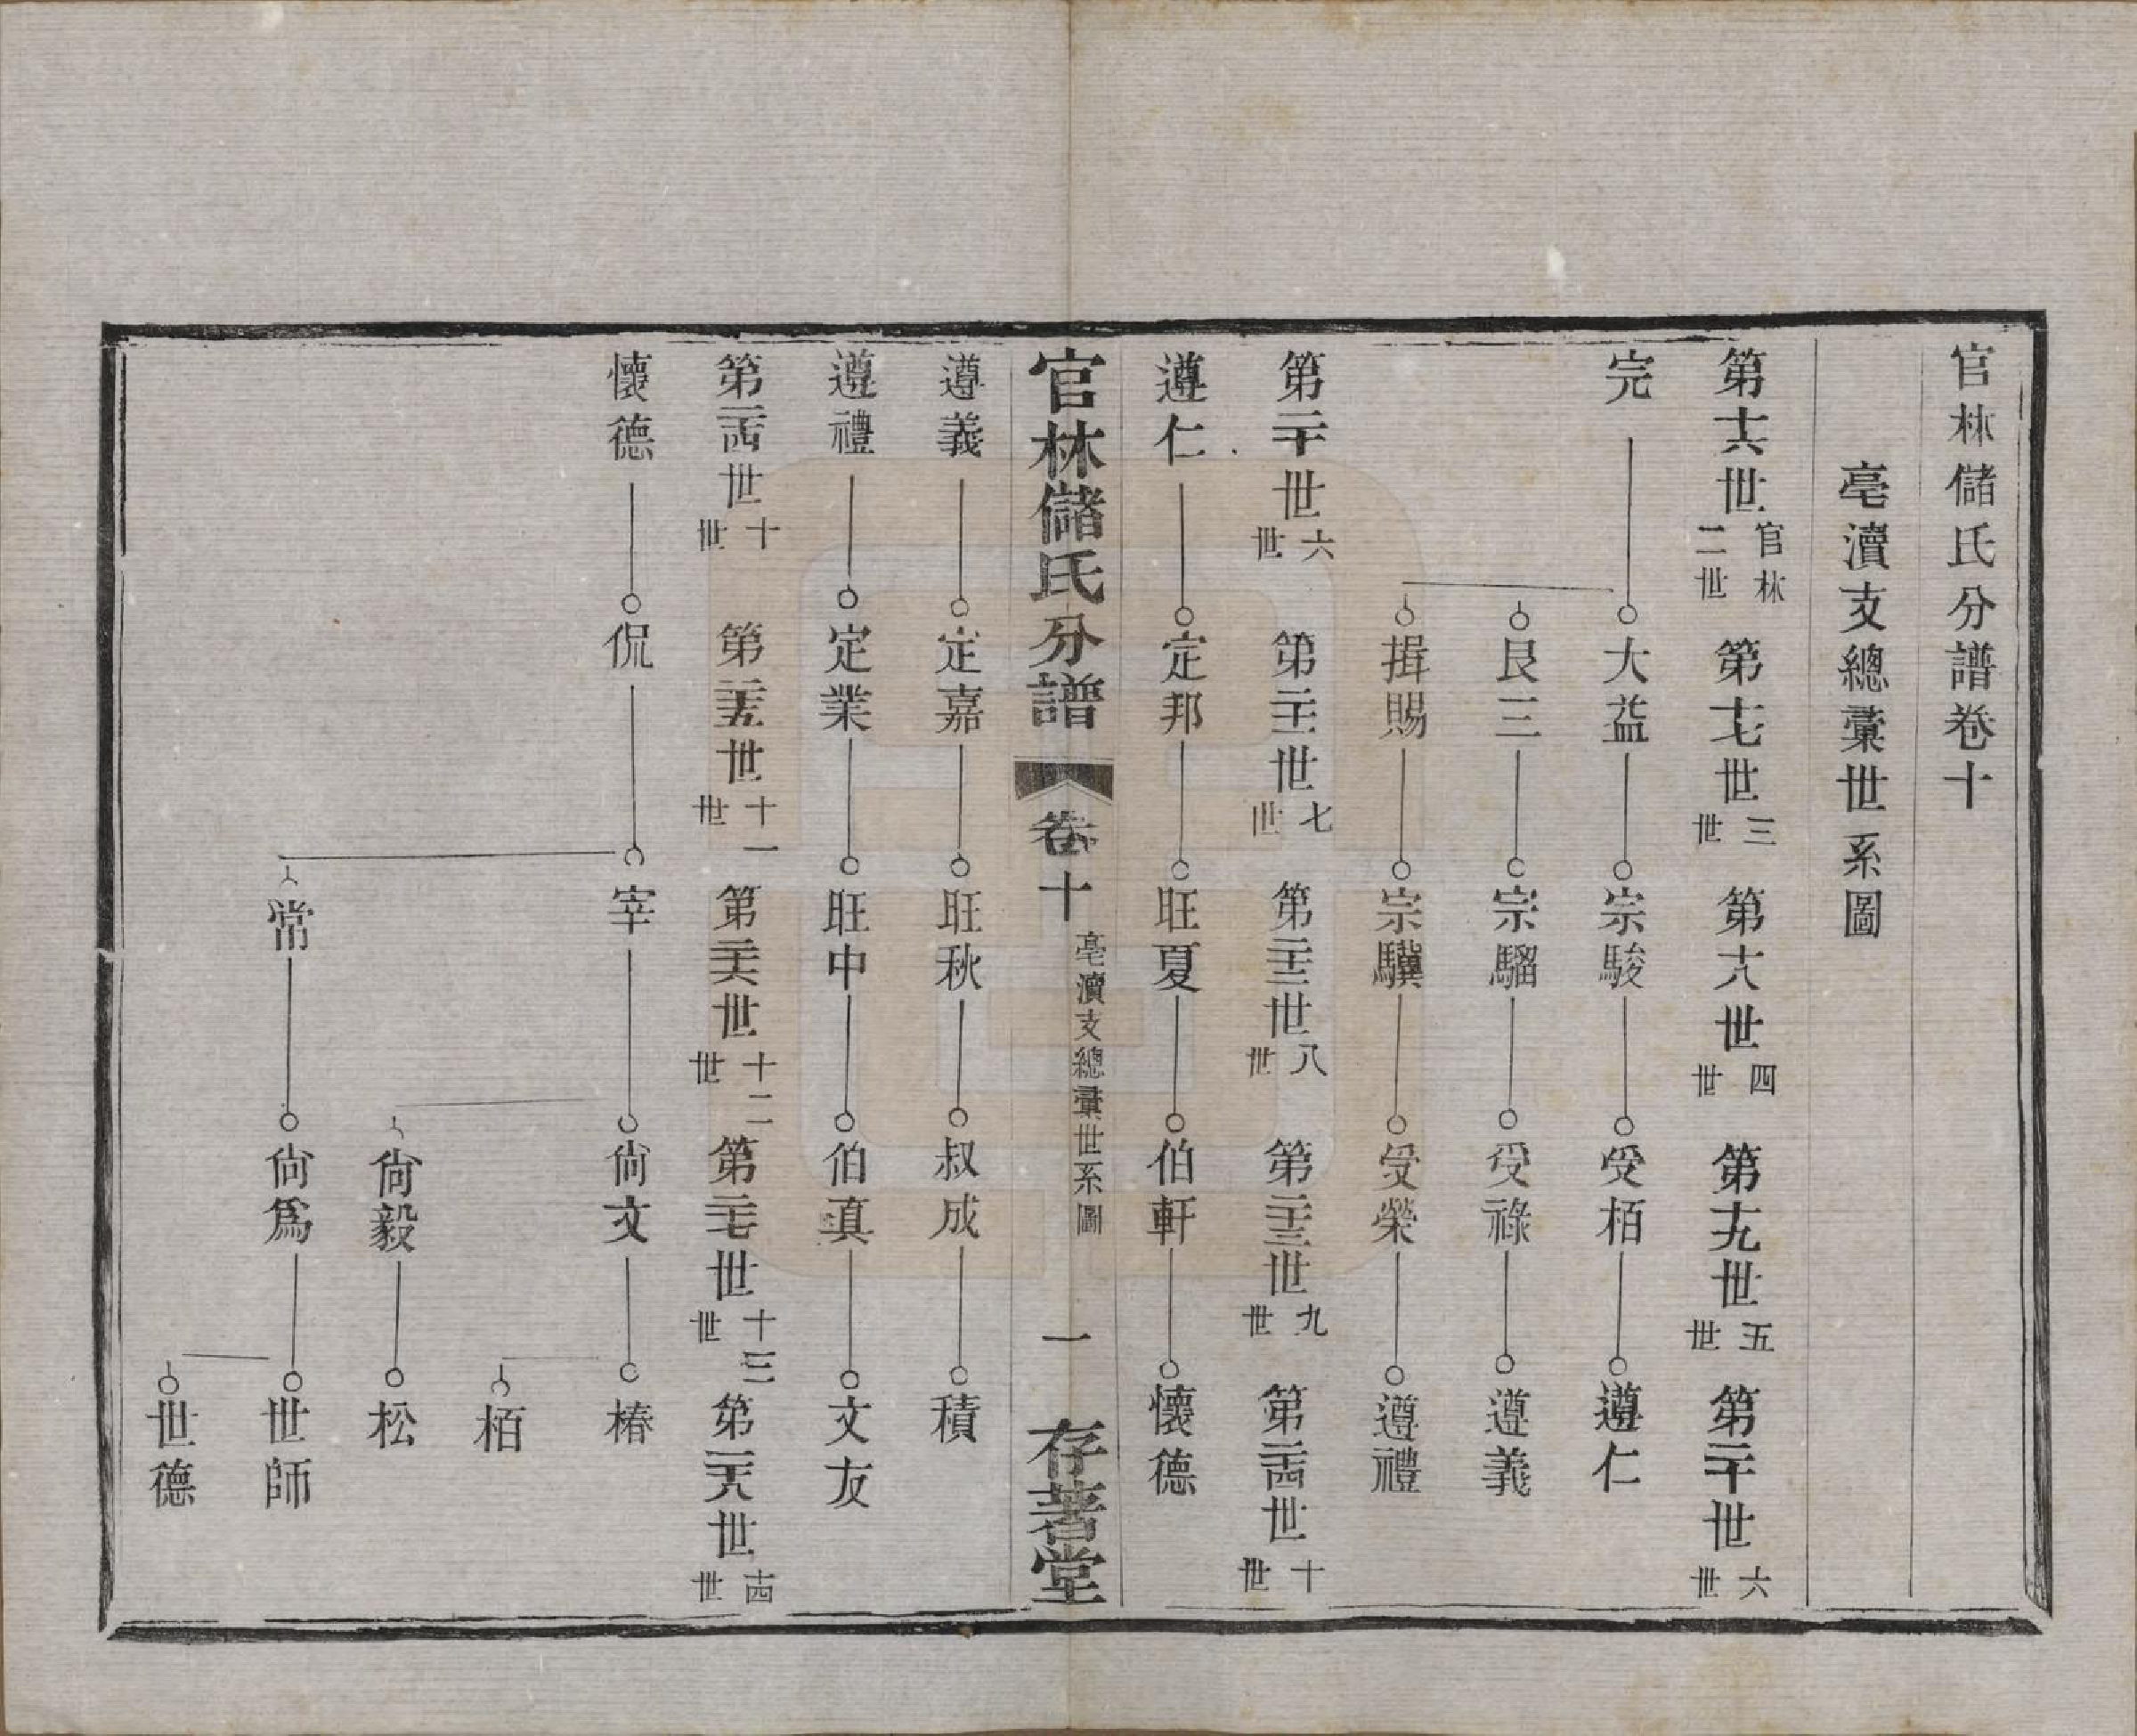 官林儲氏分譜卷十
亳瀆支總彙世系圖
第十六世 官林二世 第十七世 三世 第十八世 四世 第十九世 五世 第二十世 六世
完 大益 宗駿 受栢 遵仁
艮三 宗騮 受祿 遵義
揖賜 宗驥 受榮 遵禮
第二十世 六世 第二十一世 七世 第二十二世 八世 第二十三世 九世 第二十四世 十世
遵仁 定邦 旺夏 伯軒 懷德
官林儲氏分譜 卷十 亳瀆支總彙世系圖 一 存著堂
遵義 定嘉 旺秋 叔成 積
遵禮 定業 旺中 伯眞 文友
第二十四世 十世 第二十五世 十一世 第二十六世 十二世 第二十七世 十三世 第二十八世 十四世
懷德 侃 宰 尙文 椿
栢
尙毅 松
常 尙爲 世師
世德